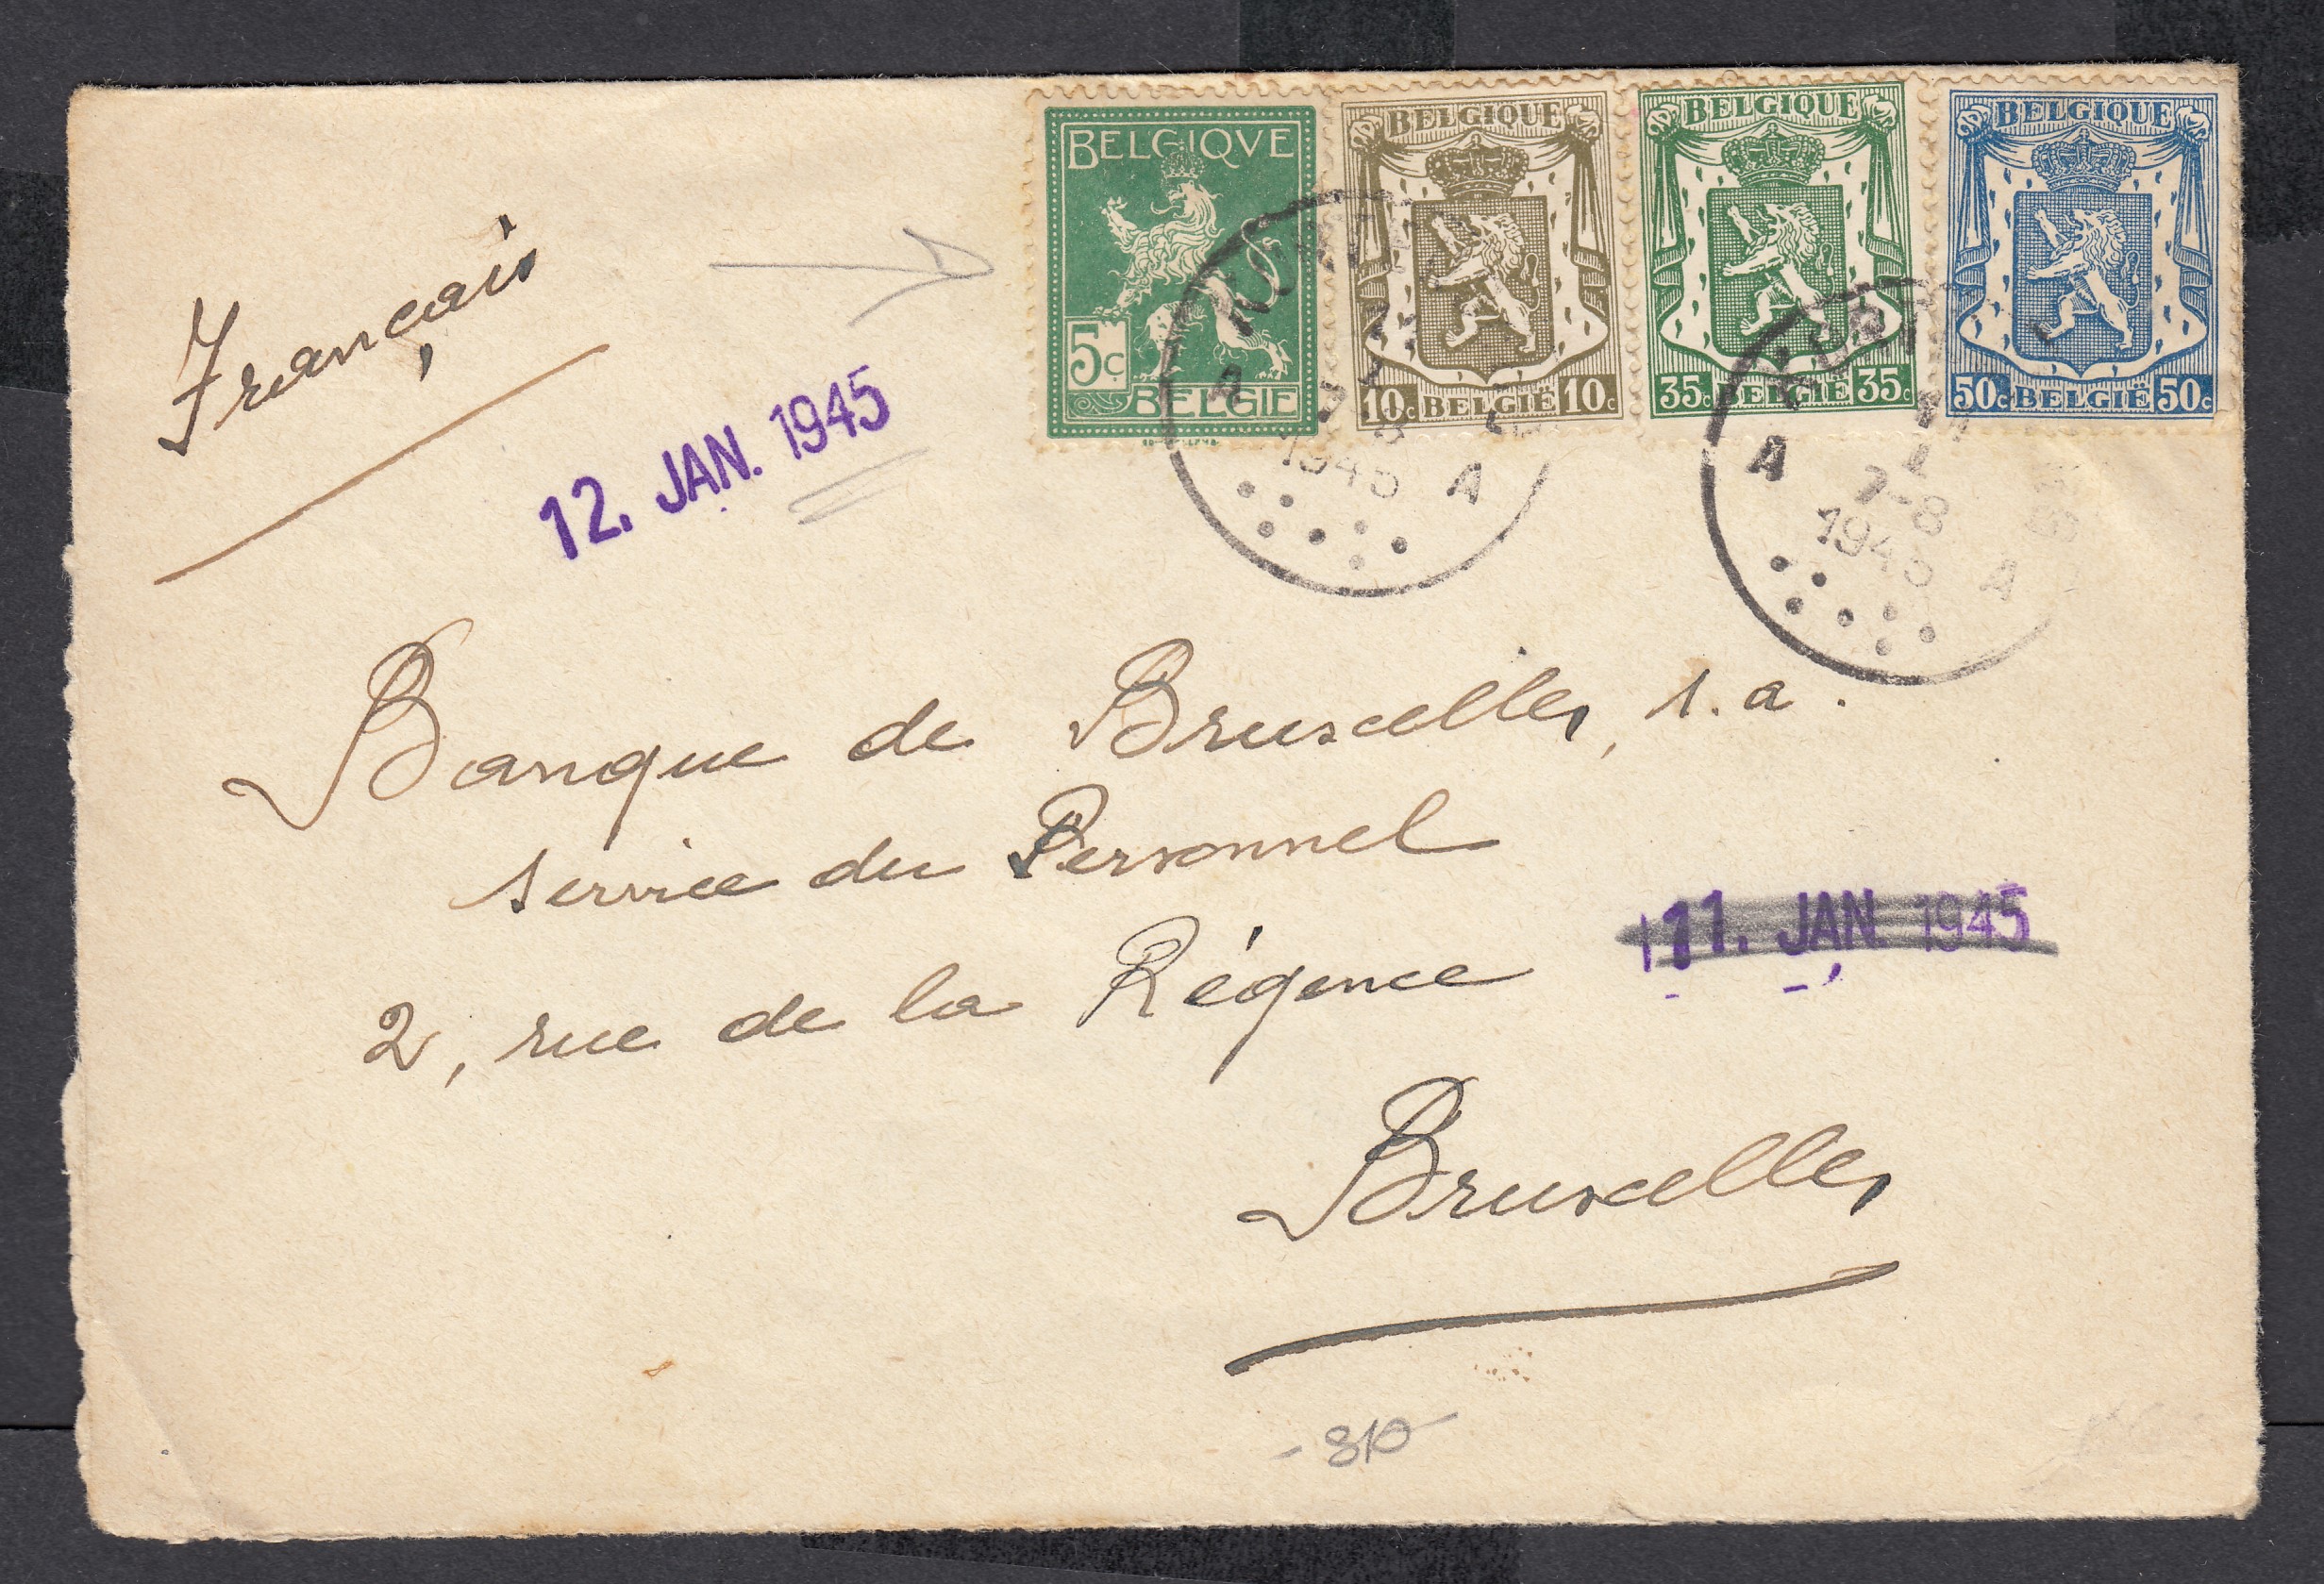 BELGIQVE
5c
BELGIE
BELGIQUE
10c BELGIË 10c
BELGIQUE
35c BELGIË 35c
BELGIQUE
50c BELGIË 50c
A 1945 A
A 11 1 7-8 1945 A
Français
12. JAN. 1945
Banque de Bruxelles, s.a.
service du Personnel
11. JAN. 1945
2, rue de la Régence
Bruxelles